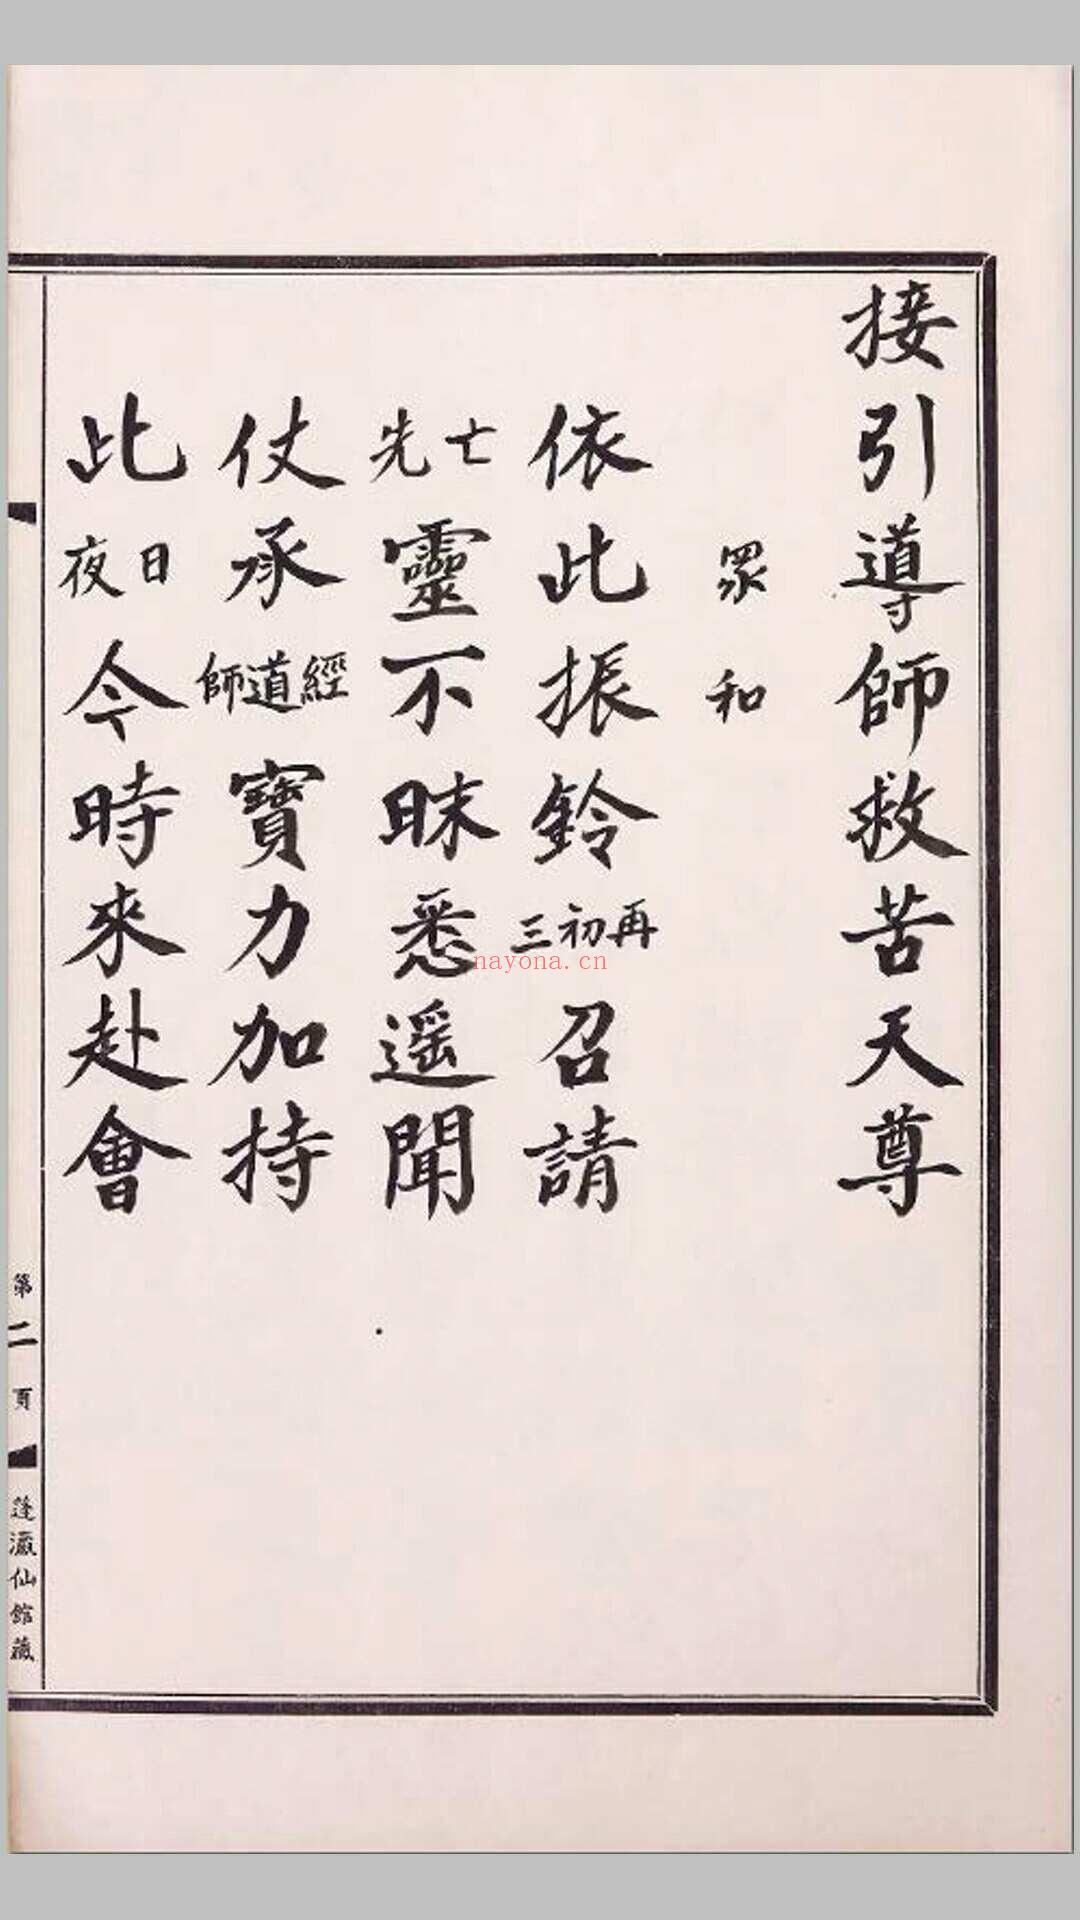 接引導師救苦天尊
眾和
依此振鈴再初三召請
亡先靈不昧悉遥聞
仗承經道師寶力加持
此日夜今時來赴會
第二頁
蓬瀛仙館藏
nayona.cn